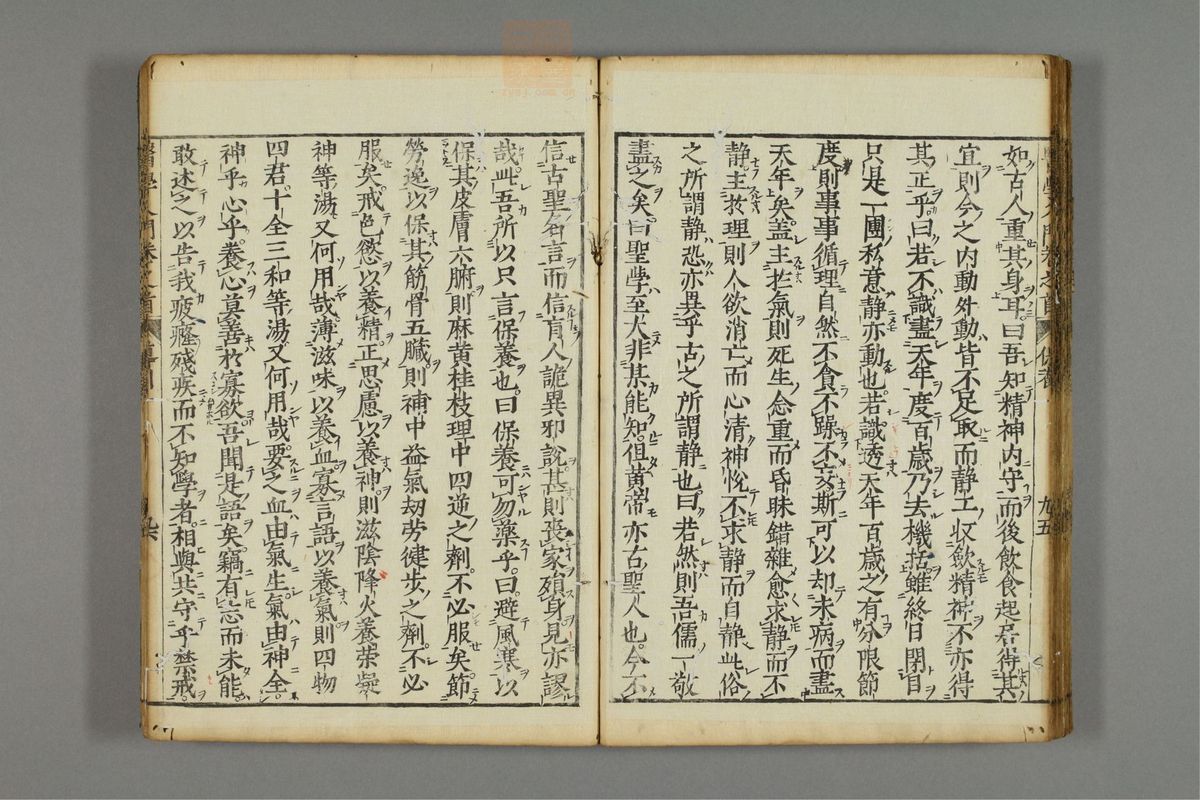 如古人重其身耳曰吾知精神内守而後飲食起居得其
宜則今之内動外動皆不足取而静工收歛精神不亦得
其正乎曰若不識盡天年度百歳乃去機括雖終日閉目
只是一團私意静亦動也若識透天年百歳之有分限節
度則事事循理自然不貪不躁不妄斯可以却未病而盡
天年矣盖主於氣則死生念重而昏昧錯雜愈求静而不
静主於理則人欲消亡而心清神悅不求静而自静此俗
之所謂静恐亦異乎古之所謂静也曰若然則吾儒一敬
盡之矣曰聖學至大非某能知但黄帝亦古聖人也今不
信古聖名言而信盲人詭異邪說甚則喪家殞身見亦謬
哉此吾所以只言保養也曰保養可勿藥乎曰避風寒以
保其皮膚六腑則麻黄桂枝理中四逆之劑不必服矣節
勞逸以保其筋骨五臓則補中益氣劫劳徤步之劑不必
服矣戒色慾以養精正思慮以養神則滋陰降火養荣凝
神等湯又何用哉薄滋味以養血寡言語以養氣則四物
四君十全三和等湯又何用哉要之血由氣生氣由神全
神乎心乎養心莫善於寡欲吾聞是語矣竊有志而未能
敢述之以告我疲癃殘疾而不知學者相與共守乎禁戒
醫學入門卷之首
保養
九五